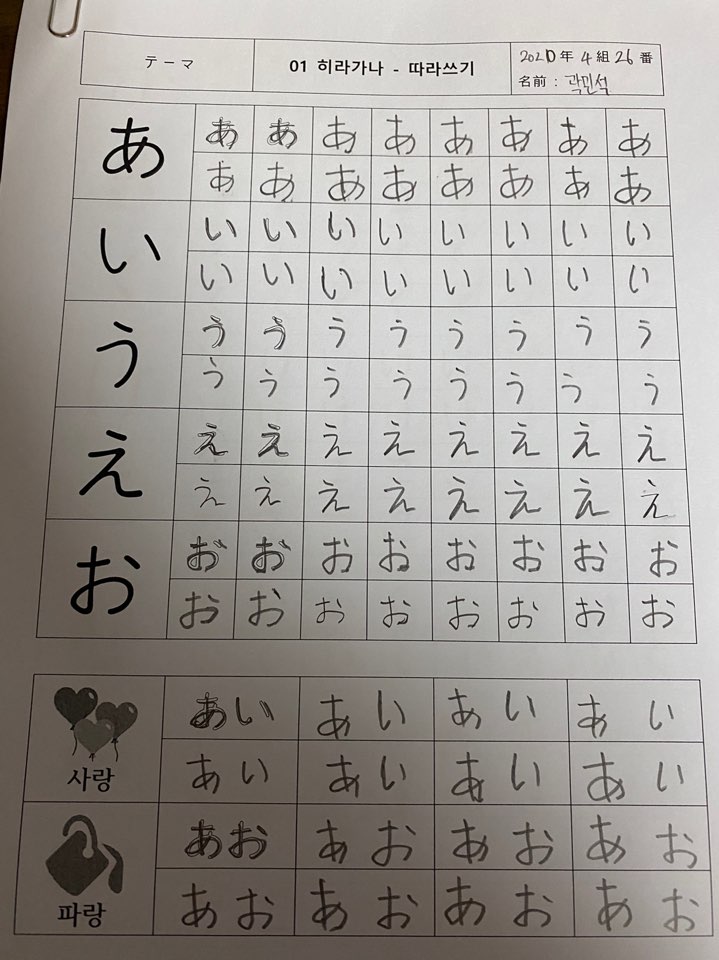 テーマ 01 히라가나 - 따라쓰기 2020 年 4 組 26 番
名前 : 곽민석
あ あ あ あ あ あ あ あ あ
あ あ あ あ あ あ あ あ
い い い い い い い い い
い い い い い い い い
う う う う う う う う う
う う う う う う う う
え え え え え え え え え
え え え え え え え え
お お お お お お お お お
お お お お お お お お
あい あい あい あい
사랑 あい あい あい あい
あお あお あお あお
파랑 あお あお あお あお